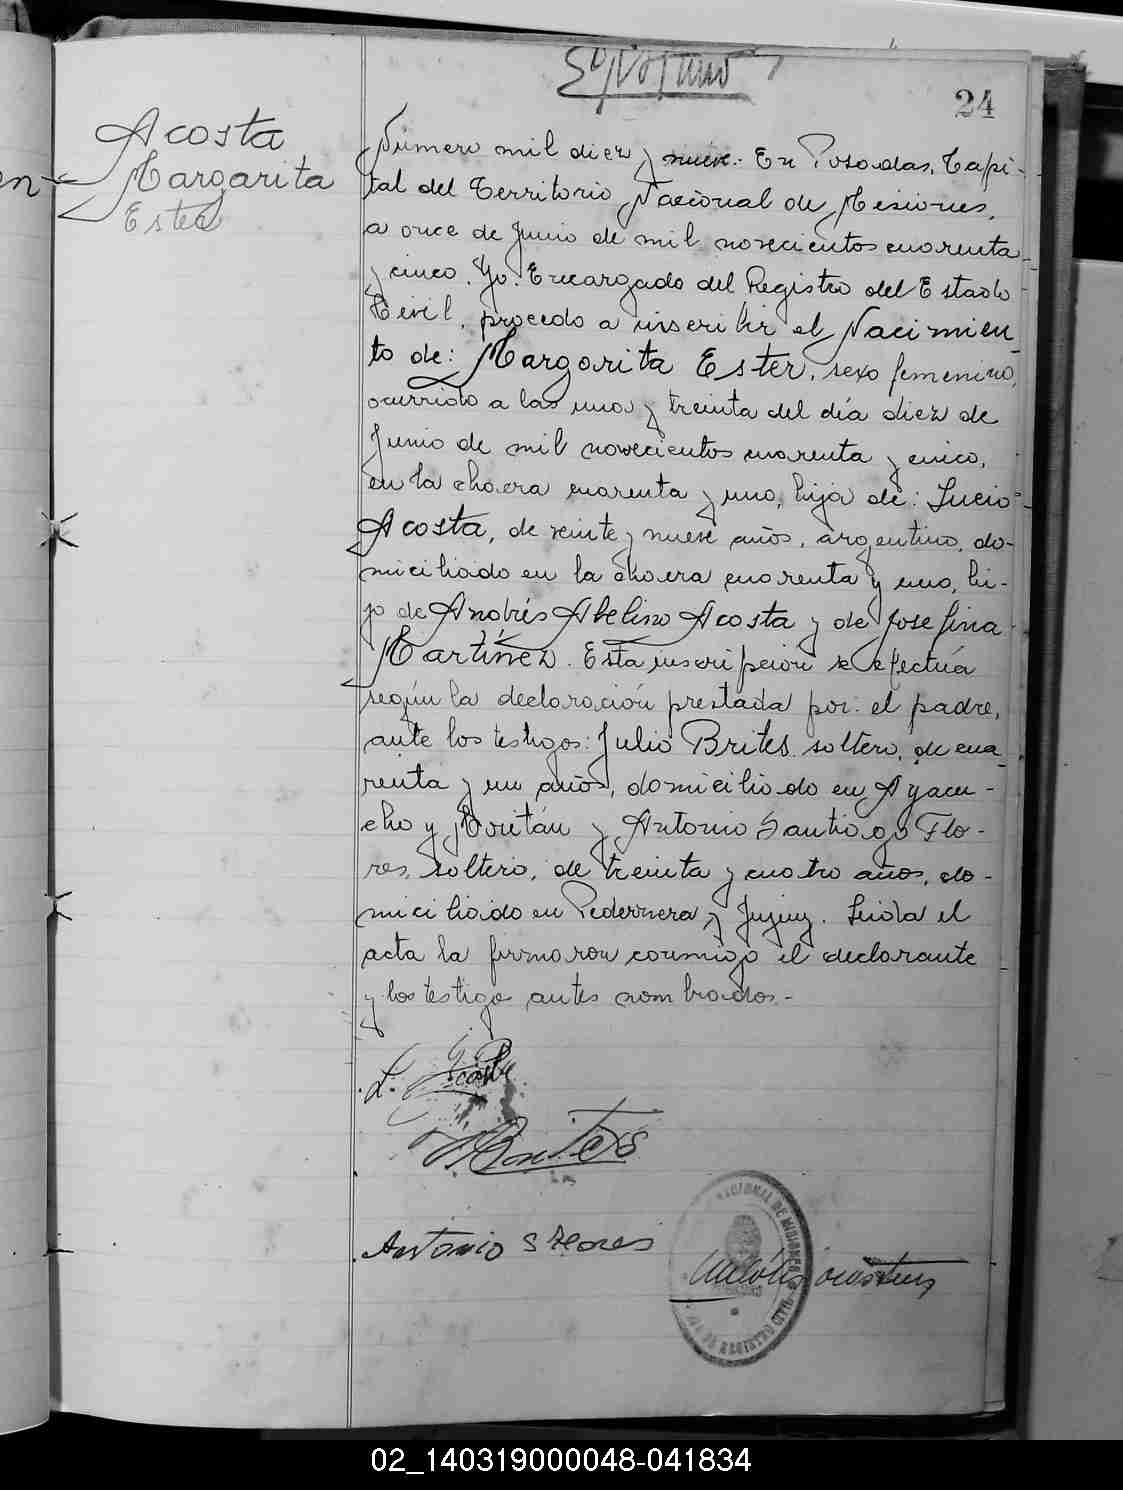 24
Acosta
Margarita
Ester
Número mil diez y nueve. En Posadas, Capi-
tal del Territorio Nacional de Misiones,
a once de Junio de mil novecientos cuarenta
y cinco. Yo. Encargado del Registro del Estado
Civil, procedo a inscribir el Nacimien-
to de: Margarita Ester, sexo femenino,
ocurrido a las una y treinta del día diez de
Junio de mil novecientos cuarenta y cinco,
en la chacra cuarenta y uno, hija de: Lucio
Acosta, de veinte y nueve años, argentino, do-
miciliado en la chacra cuarenta y uno, hi-
jo de Andrés Abelino Acosta y de Josefina
Martínez. Esta inscripción se efectúa
según la declaración prestada por: el padre,
ante los testigos: Julio Brites soltero, de cua-
renta y un años, domiciliado en Ayacu-
cho y Roitán y Antonio Santiago Flo-
res, soltero, de treinta y cuatro años, do-
miciliado en Pedernera y Jujuy. Leída el
acta la firmaron conmigo el declarante
y los testigos antes nombrados.-
L. Acosta
J. Brites
Antonio S Flores
NACIONAL DE MISIONES
02_140319000048-041834